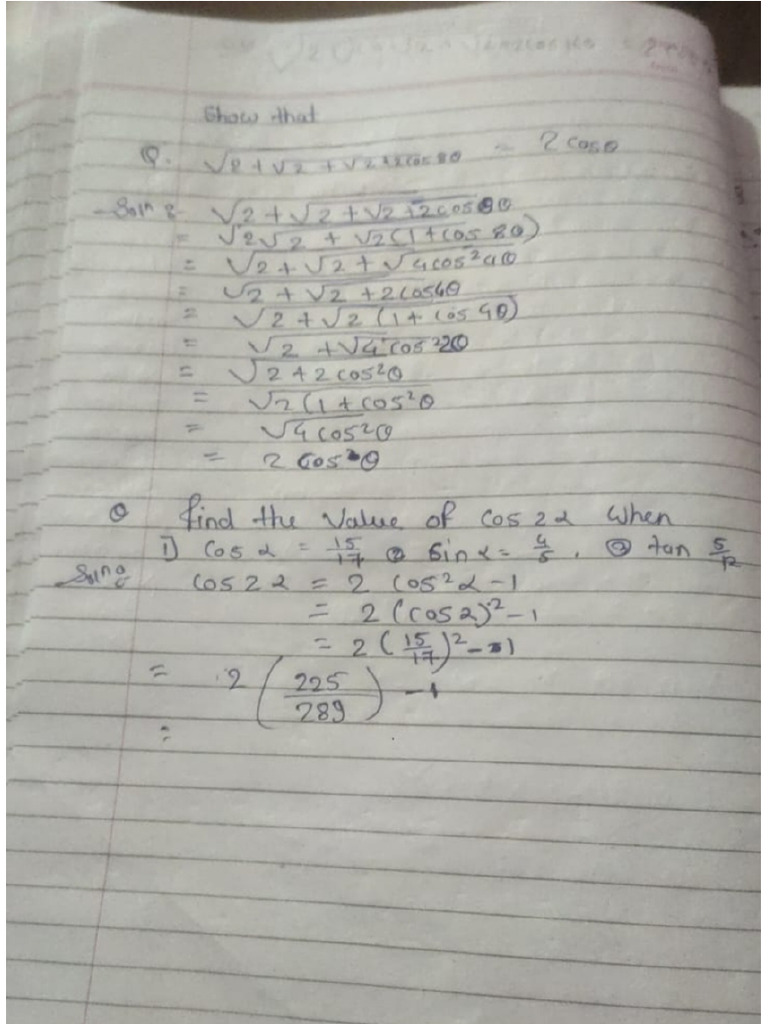 Show that
Q. √2 + √2 + √2+2cos8θ = 2 cosθ
Soln : √2 + √2 + √2+2cos8θ
= √2√2 + √2(1+cos 8θ)
= √2 + √2 + √4cos²4θ
= √2 + √2 + 2cos4θ
= √2 + √2 (1+ cos 4θ)
= √2 + √4 cos²2θ
= √2 + 2 cos2θ
= √2 (1 + cos2θ
= √4 cos²θ
= 2 cosθ
Q find the value of cos 2α when
1) cos α = 15/17 ② sin α = 4/5 . ③ tan 5/12
Soln: cos 2α = 2 cos²α - 1
= 2 (cos α)² - 1
= 2 (15/17)² - 1
= 2 (225/289) - 1
=